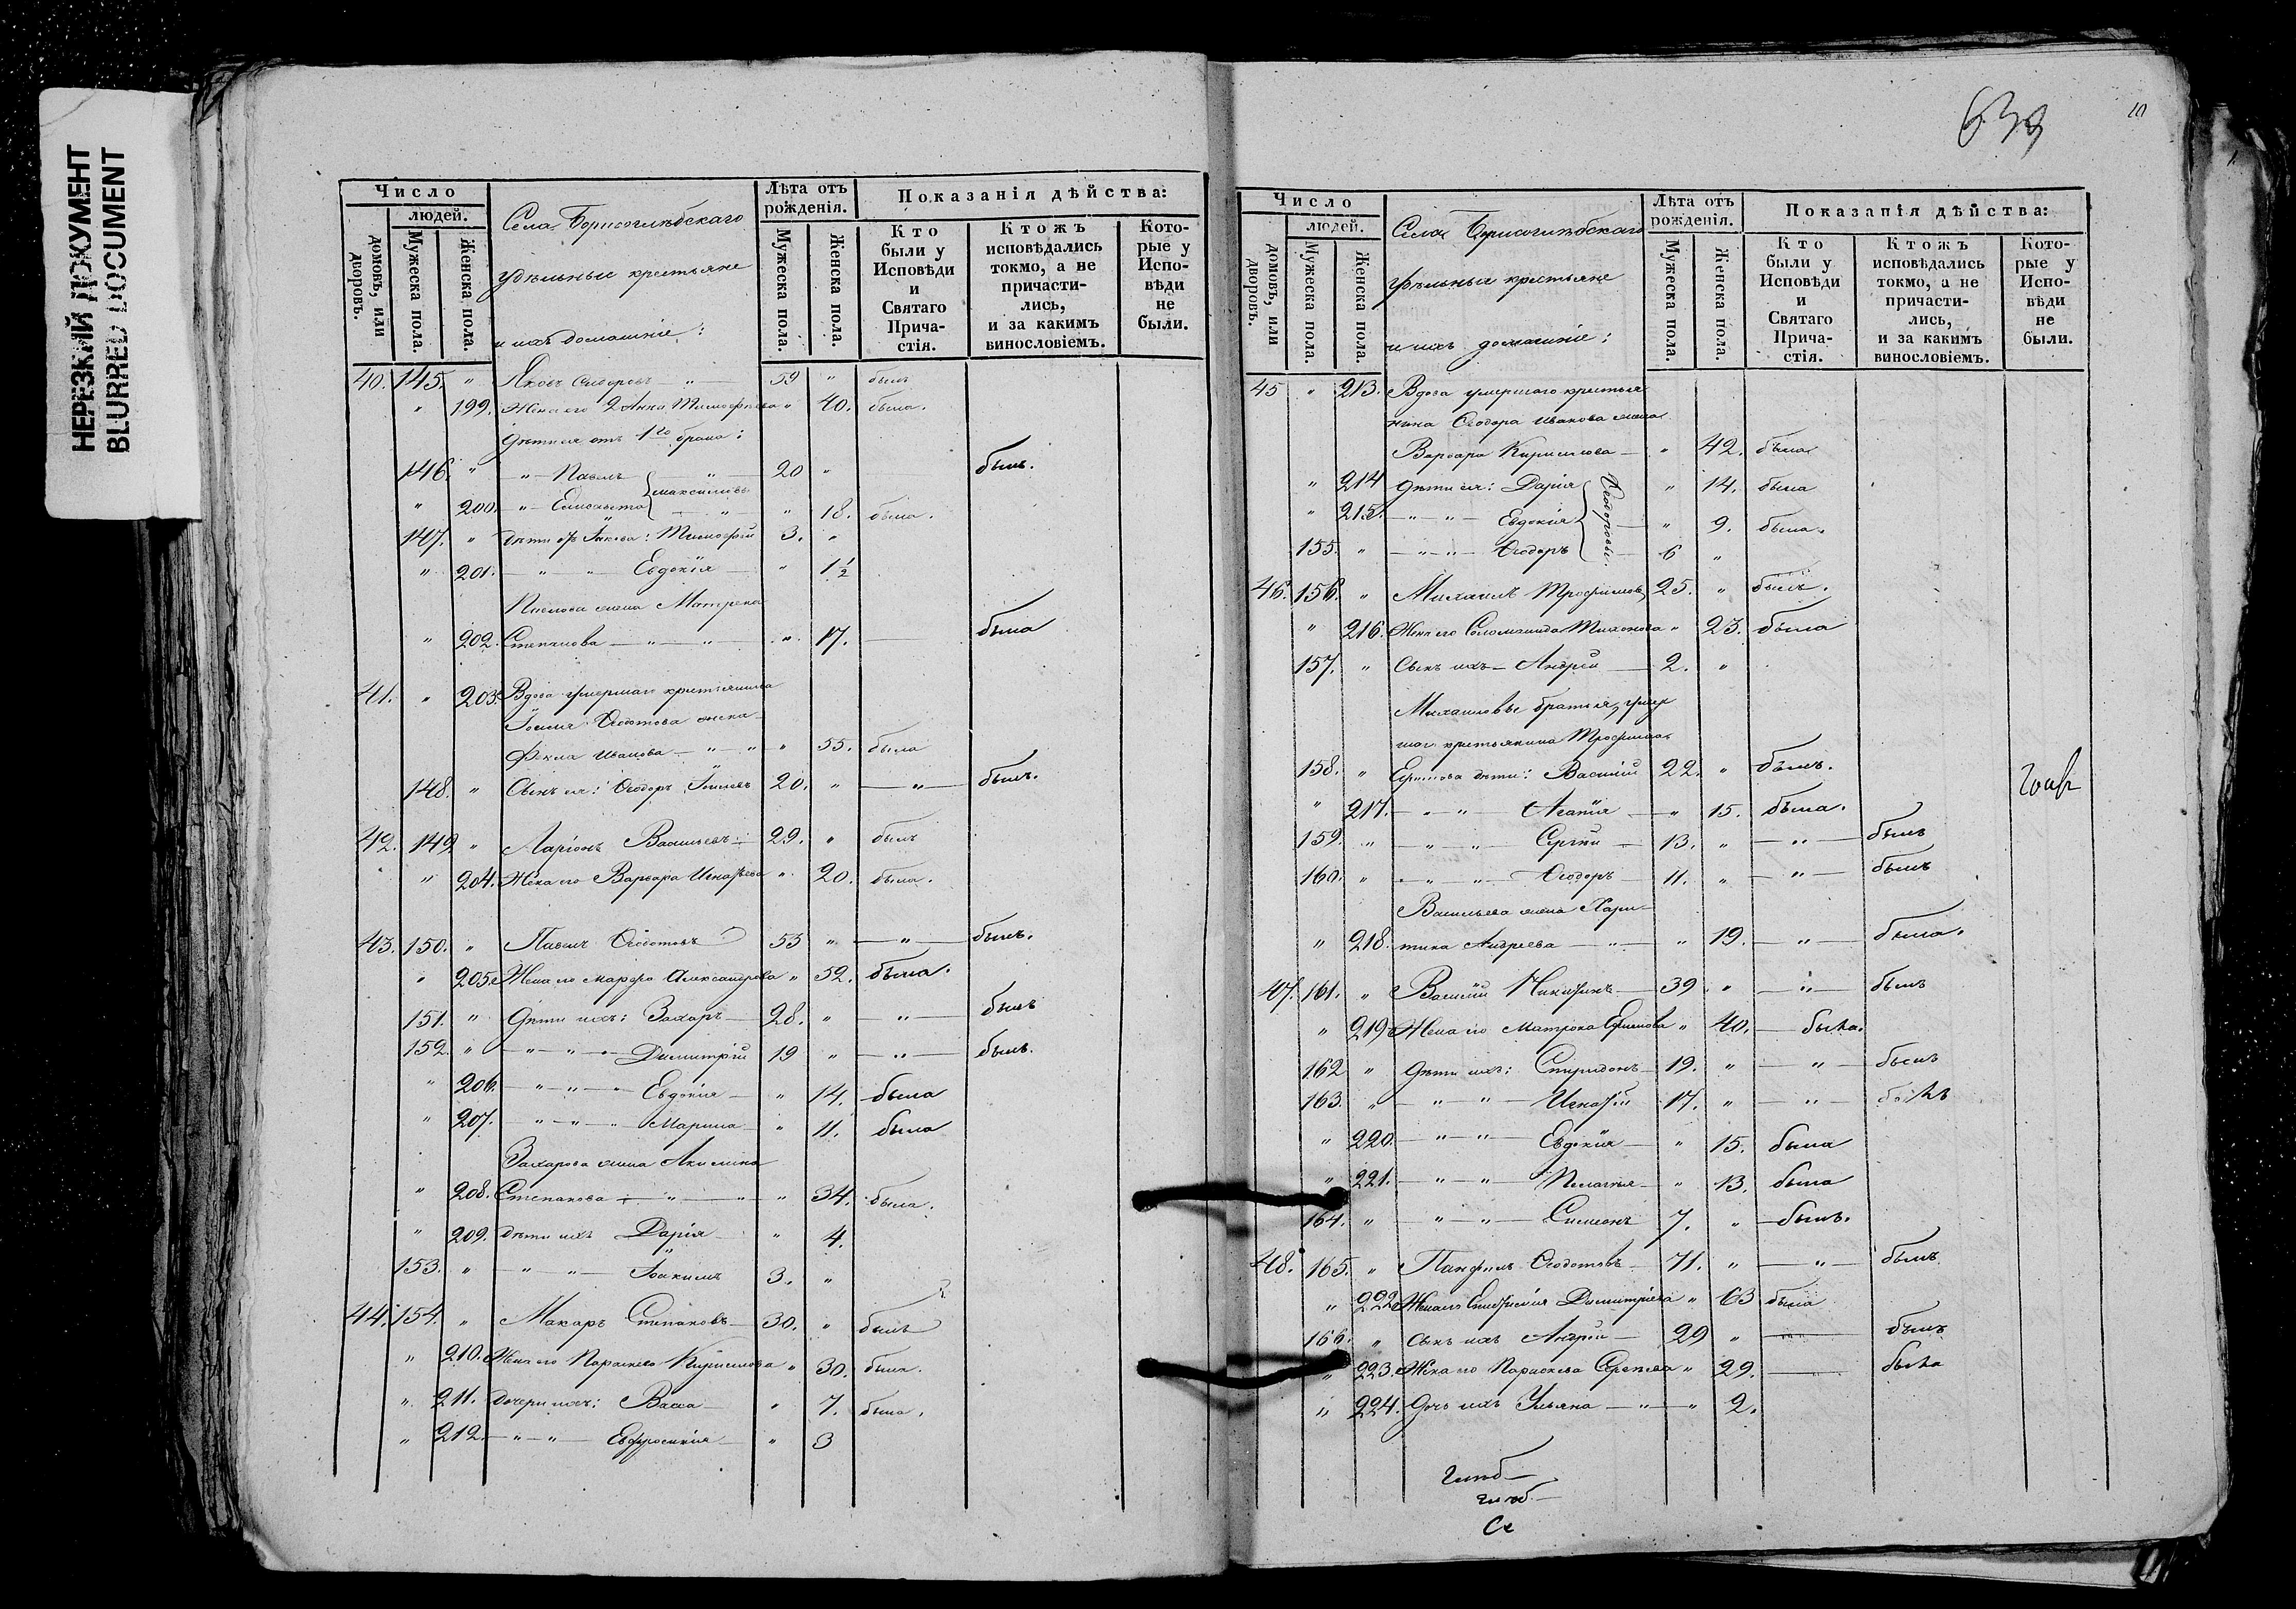 НЕРЕЗКИЙ ДОКУМЕНТ
BLURRED DOCUMENT
Число
людей.
домовъ, или дворовъ.
Мужеска пола.
Женска пола.
Села Борисоглѣбскаго
удѣльные крестьяне
и ихъ домашніе:
Лѣта отъ рожденія.
Мужеска пола.
Женска пола.
Показанія дѣйства:
Кто были у Исповѣди и Святаго Причастія.
Ктожъ исповѣдались токмо, а не причастились, и за какимъ винословіемъ.
Которые у Исповѣди не были.
40. 145. " Яковъ Сидоровъ — " — 59 " былъ
" 199. Жена его 2 Анна Тимофеева " 40. была.
Дѣти ея отъ 1го брака:
146. " " — Павелъ — " — 20 " былъ.
Максимовы
" 200. " — Елисавета — " — " 18. была.
147. " Дѣти Якова: Тимофей 3. "
" 201. — " — " Евдокія — " 1½
Павлова жена Матрена
" 202. Степанова — " — " " 17. — была
41. " 203. Вдова умершаго крестьянина
Ѳеодотова жена
Фекла Иванова — " — " " 55. была
148. " Сынъ ея: Ѳеодоръ 20. " — " — былъ.
42. 149 " Ларіонъ Васильевъ 29. " былъ
" 204. Жена его Варвара Игнатьева " 20. была.
43. 150. " Павелъ Ѳеодотовъ 53 " — " — былъ.
" 205. Жена его Марфа Александрова " 52. была.
151. " Дѣти ихъ: Захаръ — 28. " — " — былъ
152. " — " — " — Димитрій 19 " — " — былъ.
" 206. — " — " — " Евдокія — " 14. была
" 207. " — " — " Марина — " 11. была
Захарова жена Акилина
" 208. Степанова — " — " " 34. была.
" 209. Дѣти ихъ Дарія " 4.
153. " — " — " — Іоакимъ 3. "
44. 154. " Макаръ Степановъ — 30. " былъ
" 210. Жена его Параскева Кириллова " 30. была.
" 211. Дочери ихъ: Васса " 7. была.
" 212. — " — " — Евфросинія — " 3
639
10
Число
людей.
домовъ, или дворовъ.
Мужеска пола.
Женска пола.
Села Борисоглѣбскаго
удѣльные крестьяне
и ихъ домашніе:
Лѣта отъ рожденія.
Мужеска пола.
Женска пола.
Показанія дѣйства:
Кто были у Исповѣди и Святаго Причастія.
Ктожъ исповѣдались токмо, а не причастились, и за какимъ винословіемъ.
Которые у Исповѣди не были.
45 " 213. Вдова умершаго крестья
нина Ѳеодора Иванова жена
Варвара Кириллова — " 42. была
" 214 Дѣти ея: Дарія " 14. была
Ѳеодоровы
" 215. — " — " — Евдокія — " 9. была.
155. " — " — " — Ѳеодоръ — 6 "
46. 156. " Михаилъ Трофимовъ 25. " былъ.
" 216. Жена его Соломанида Тихонова " 23. была
157. " Сынъ ихъ — Андрей — 2. "
Михаиловы братья, умер
шаго крестьянина Трофима
158. " дѣти: Василій 22. " былъ.
" 217. — " — " — Агапія — " 15. была.
159. " — " — " — Сергій — 13. " — " — былъ
160. " — " — " — Ѳеодоръ — 11. " — " — былъ
Васильева жена Хари-
" 218. тина Андреева — " — " 19. — " — была.
47. 161. " Василій Никитинъ — 39 " — " — былъ
" 219 Жена его Матрона Ефимова " 40. — была.
162 " Дѣти ихъ: Спиридонъ — 19. " — " — былъ
163. " — " — " — Игнатій — 17. " — " — былъ
" 220. — " — " — Евдокія — " 15. была
" 221. — " — " — Пелагія — " 13. была
164. " — " — " — Симеонъ — 7. " — былъ.
48. 165. " Панфилъ Ѳеодотовъ — 71. " — " — былъ
" 222 Жена его Димитріева " 63 была
166. " Сынъ ихъ Андрей — 29 " — былъ
" 223. Жена его Параскева Сергеева " 29. — была
" 224. Дочь ихъ Ульяна — " — " 2.